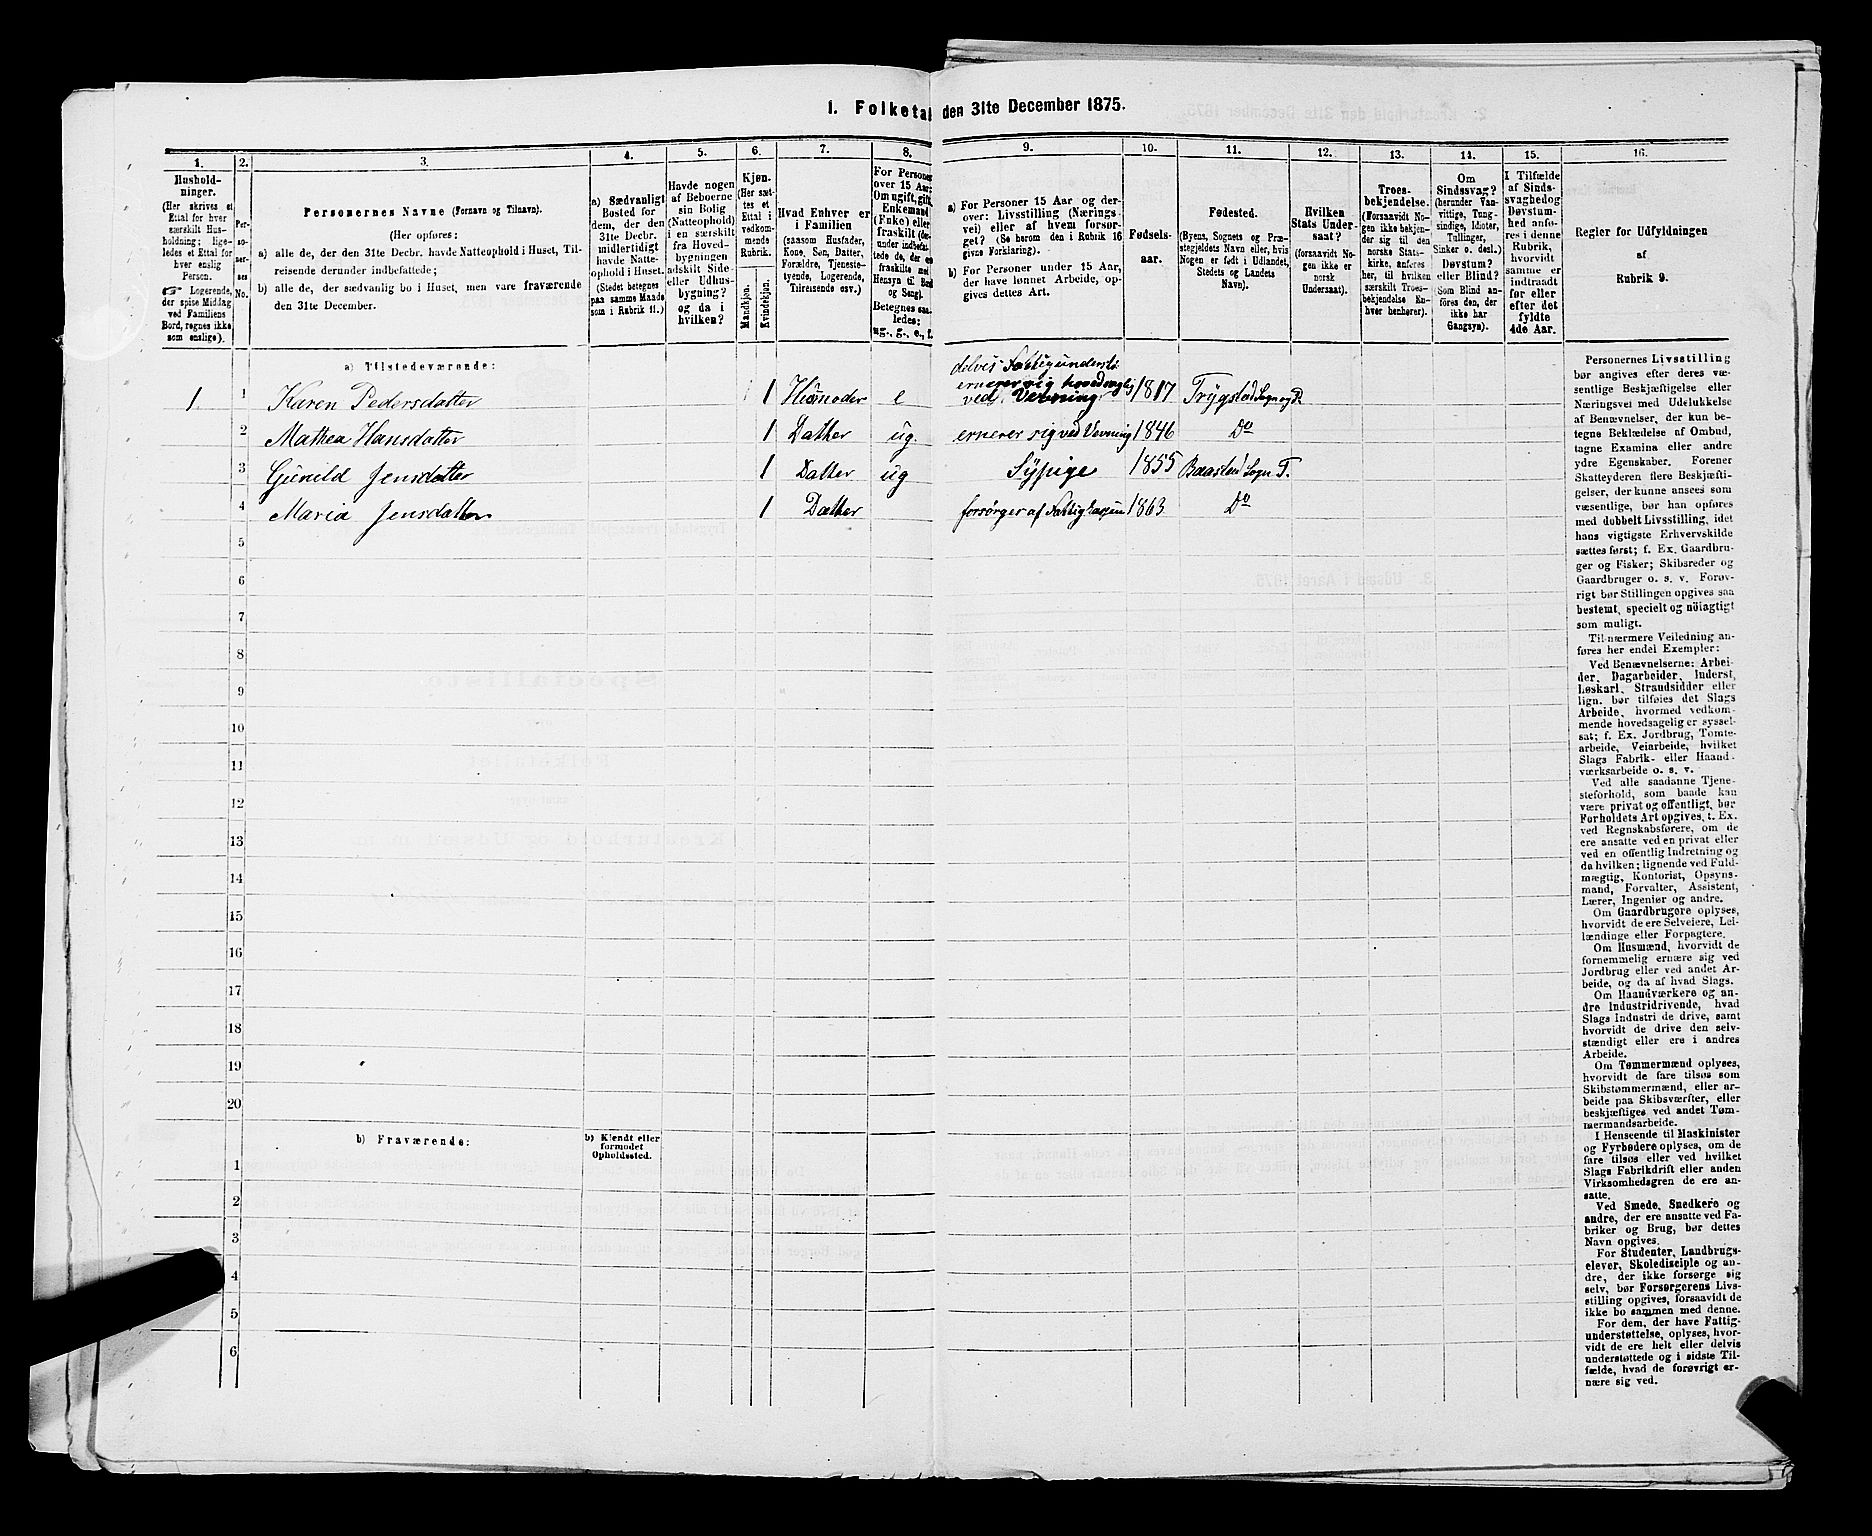 1. Folketal den 31te December 1875.
1.
Hushold-
ninger.
(Her skrives et
Ettal for hver
særskilt Hus-
holdning; lige-
ledes et Ettal for
hver enslig
Person.
☞ Logerende,
der spise Middag
ved Familiens
Bord, regnes ikke
som enslige).
2.
Per-
so-
ner-
nes
No.
3.
Personernes Navne (Fornavn og Tilnavn).
(Her opføres:
a) alle de, der den 31te Decbr. havde Natteophold i Huset, Til-
reisende derunder indbefattede;
b) alle de, der sædvanlig bo i Huset, men vare fraværende
den 31te December.
4.
a) Sædvanligt
Bosted for
dem, der den
31te Decbr.
midlertidigt
havde Natte-
ophold i Huset.
(Stedet betegnes
paa samme Maade
som i Rubrik 11.)
5.
Havde nogen
af Beboerne
sin Bolig
(Natteophold)
i en særskilt
fra Hoved-
bygningen
adskilt Side-
eller Udhus-
bygning?
og da i
hvilken?
6.
Kjøn.
(Her sæt-
tes et
Ettal i
vedkom-
mende
Rubrik.
Mandkjøn.
Kvindekjøn.
7.
Hvad Enhver er
i Familien
(saasom Husfader,
Kone, Søn, Datter,
Forældre, Tjeneste-
tyende, Logerende,
Tilreisende osv.)
8.
For Personer
over 15 Aar:
Om ugift, gift,
Enkemand
(Enke) eller
fraskilt (der-
under indbefat-
tede de, der ere
fraskilte med
Hensyn til Bord
og Seng).
Betegnes saa-
ledes:
ug., g., e., f.
9.
a) For Personer 15 Aar og der-
over: Livsstilling (Nærings-
vei) eller af hvem forsør-
get? (Se herom den i Rubrik 16
givne Forklaring).
b) For Personer under 15 Aar,
der have lønnet Arbeide, op-
gives dettes Art.
10.
Fødsels-
aar.
11.
Fødested.
(Byens, Sognets og Præ-
stegjeldets Navn eller, hvis
Nogen er født i Udlandet,
Stedets og Landets
Navn).
12.
Hvilken
Stats Under-
saat?
(forsaavidt No-
gen ikke er
norsk
Undersaat).
13.
Troes-
bekjendelse.
(Forsaavidt No-
gen ikke bekjen-
der sig til den
norske Stats-
kirke, anføres
her, til hvilken
særskilt Troes-
bekjendelse En-
hver henhører).
14.
Om
Sindssvag?
(herunder Van-
vittige, Tung-
sindige, Idioter,
Tullinger,
Sinker o. desl.)
Døvstum?
eller Blind?
(Som Blind an-
føres den, der
ikke har
Gangsyn).
15.
I Tilfælde
af Sinds-
svaghed og
Døvstum-
hed anfø-
res i denne
Rubrik,
hvorvidt
samme er
indtraadt
før eller
efter det
fyldte
4de Aar.
16.
Regler for Udfyldningen
af
Rubrik 9.
a) Tilstedeværende:
delvis Fattigunderst:
ernerer sig hovedsaglig
1. 1 Karen Pedersdatter 1 Husmoder e ved Vevning 1817 Trygstad Sogn og P.
2 Mathea Hansdatter 1 Datter ug. ernerer sig ved Vevning 1846 Do
3 Gunild Jensdatter 1 Datter ug Sypige 1855 Baastad Sogn T.
4 Maria Jensdatter 1 Datter forsørges af Fattigkassen 1863 Do
5
6
7
8
9
10
11
12
13
14
15
16
17
18
19
20
b) Fraværende:
b) Kjendt eller
formodet
Opholdssted.
1
2
3
4
5
6
Personernes Livsstilling
bør angives efter deres væ-
sentlige Beskjæftigelse eller
Næringsvei med Udelukkelse
af Benævnelser, der kun be-
tegne Beklædelse af Ombud,
tagne Examina eller andre
ydre Egenskaber. Forener
Skatteyderen flere Beskjæfti-
gelser, der kunne ansees som
væsentlige, bør han opføres
med dobbelt Livsstilling, idet
hans vigtigste Erhvervskilde
sættes først; f. Ex. Gaardbru-
ger og Fisker; Skibsreder og
Gaardbruger o. s. v. Forøv-
rigt bør Stillingen opgives saa
bestemt, specielt og nöiagtigt
som muligt.
Til nærmere Veiledning an-
føres her endel Exempler:
Ved Benævnelserne: Arbei-
der, Dagarbeider, Inderst,
Løskarl, Strandsidder eller
lign. bør tilføies det Slags
Arbeide, hvormed vedkom-
mende hovedsagelig er syssel-
sat; f. Ex. Jordbrug, Tomte-
arbeide, Veiarbeide, hvilket
Slags Fabrik- eller Haand-
værksarbeide o. s. v.
Ved alle saadanne Tjene-
steforhold, som baade kan
være privat og offentligt, bør
Forholdets Art opgives, t. Ex.
ved Regnskabsførere, om de
ere ansatte ved en privat eller
ved en offentlig Indretning og
da hvilken; lignende ved Fuld-
mægtig, Kontorist, Opsyns-
mand, Forvalter, Assistent,
Lærer, Ingeniør og andre.
Om Gaardbrugere oplyses,
hvorvidt de ere Selveiere, Lei-
lændinge eller Forpagtere.
Om Husmænd, hvorvidt de
fornemmelig ernære sig ved
Jordbrug eller ved andet Ar-
beide, og da af hvad Slags.
Om Haandværkere og an-
dre Industridrivende, hvad
Slags Industri de drive, samt
hvorvidt de drive den selv-
stændigt eller ere i andres
Arbeide.
Om Tømmermænd oplyses,
hvorvidt de fare tilsøs som
Skibstømmermænd, eller ar-
beide paa Skibsværfter, eller
beskjæftiges ved andet Tøm-
mermandsarbeide.
I Henseende til Maskinister
og Fyrbødere oplyses, om de
fare tilsøs eller ved hvilket
Slags Fabrikdrift eller anden
Virksomhedsgren de ere an-
satte.
Ved Smede, Snedkere og
andre, der ere ansatte ved Fa-
briker og Brug, bør dettes
Navn opgives.
For Studenter, Landbrugs-
elever, Skoledisciple og an-
dre, der ikke forsørge sig
selv, bør Forsørgerens Livs-
stilling opgives, forsaavidt de
ikke bo sammen med denne.
For dem, der have Fattig-
understøttelse, oplyses, hvor-
vidt de ere helt eller delvis
understøttede og i sidste Til-
fælde, hvad de forøvrigt er-
nære sig ved.